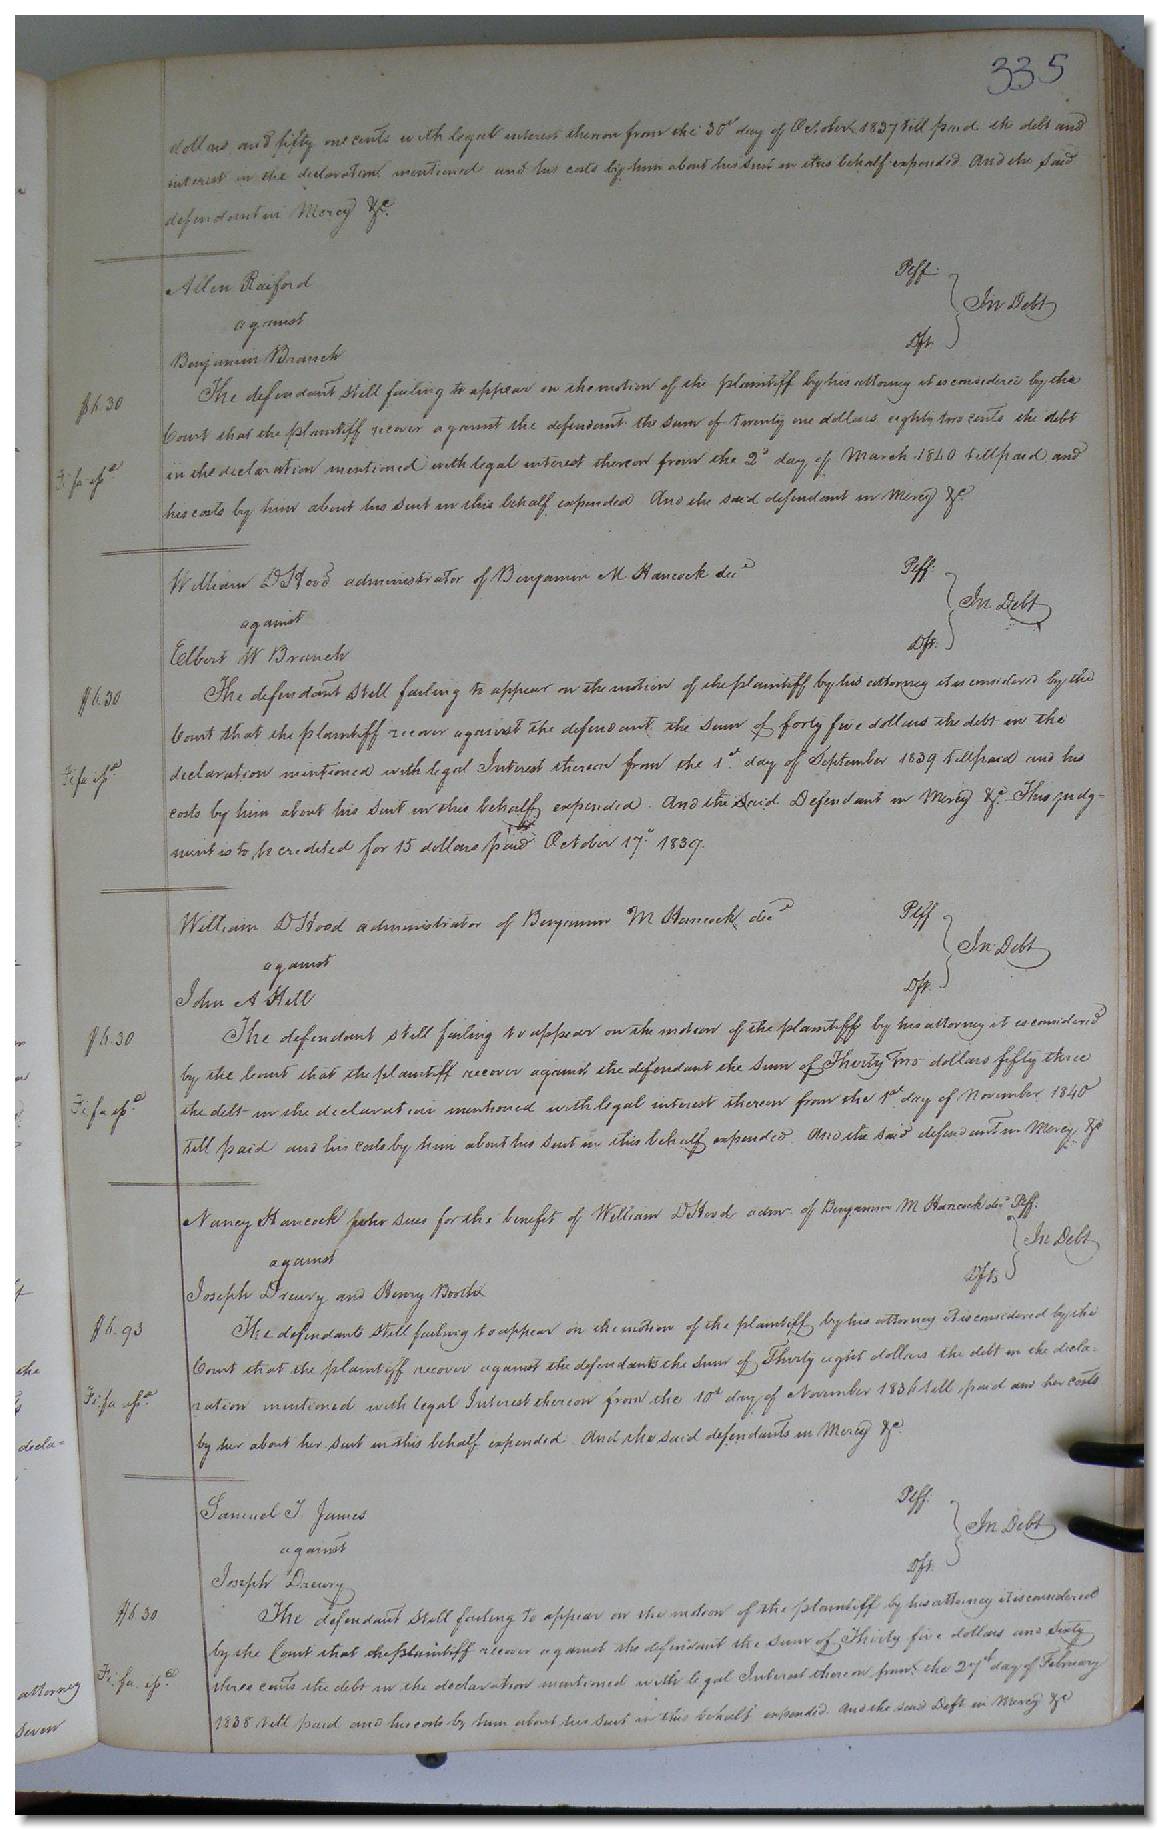 335
dollars and fifty one cents with legal interest thereon from the 30th day of October 1837 till paid the debt and
interest in the declaration mentioned and his costs by him about his suit in this behalf expended. And the said
defendant in Mercy &c.
Allen Raiford Plff.
against In Debt
Benjamin Branch Dft.
The defendant still failing to appear on the motion of the plaintiff by his attorney it is considered by the
$6.30
Court that the plaintiff recover against the defendant the sum of twenty one dollars eighty two cents the debt
in the declaration mentioned with legal interest thereon from the 2d day of March 1840 till paid and
Fi fa issd
his costs by him about his suit in this behalf expended. And the said defendant in Mercy &c.
William D Hood administrator of Benjamin M Hancock decd Plff.
against In Debt
Elbert W Branch Dft.
The defendant still failing to appear on the motion of the plaintiff by his attorney it is considered by the
$6.30
Court that the plaintiff recover against the defendant the sum of forty five dollars the debt in the
declaration mentioned with legal Interest thereon from the 1st day of September 1839 till paid and his
Fi fa issd
costs by him about his suit in this behalf expended. And the said Defendant in Mercy &c. This judg-
ment is to be credited for 15 dollars paid October 17th 1839.
William D Hood administrator of Benjamin M Hancock decd Plff
against In Debt
John A Hill Dft.
The defendant still failing to appear on the motion of the plaintiff by his attorney it is considered
$6.30
by the Court that the plaintiff recover against the defendant the sum of Thirty Two dollars fifty three
the debt in the declaration mentioned with legal interest thereon from the 1st day of November 1840
Fi. fa issd
till paid and his costs by him about his suit in this behalf expended. And the said defendant in Mercy &c
Nancy Hancock who sues for the benefit of William D Hood admr of Benjamin M Hancock decd Plff.
against In Debt
Joseph Drewry and Henry Booth Dfts
The defendants still failing to appear on the motion of the plaintiff by his attorney it is considered by the
$6.93
Court that the plaintiff recover against the defendants the sum of Thirty eight dollars the debt in the decla-
ration mentioned with legal Interest thereon from the 10th day of November 1836 till paid and her costs
Fi. fa issd
by her about her suit in this behalf expended. And the said defendants in Mercy &c.
Samuel T James Plff.
against In Debt
Joseph Drewry Dft.
The defendant still failing to appear on the motion of the plaintiff by his attorney it is considered
$6.30
by the Court that the plaintiff recover against the defendant the sum of Thirty five dollars and sixty
three cents the debt in the declaration mentioned with legal Interest thereon from the 27th day of February
Fi. fa. issd
1838 till paid and his costs by him about his suit in this behalf expended. And the said Deft in Mercy &c
the
decla-
attorney
seven